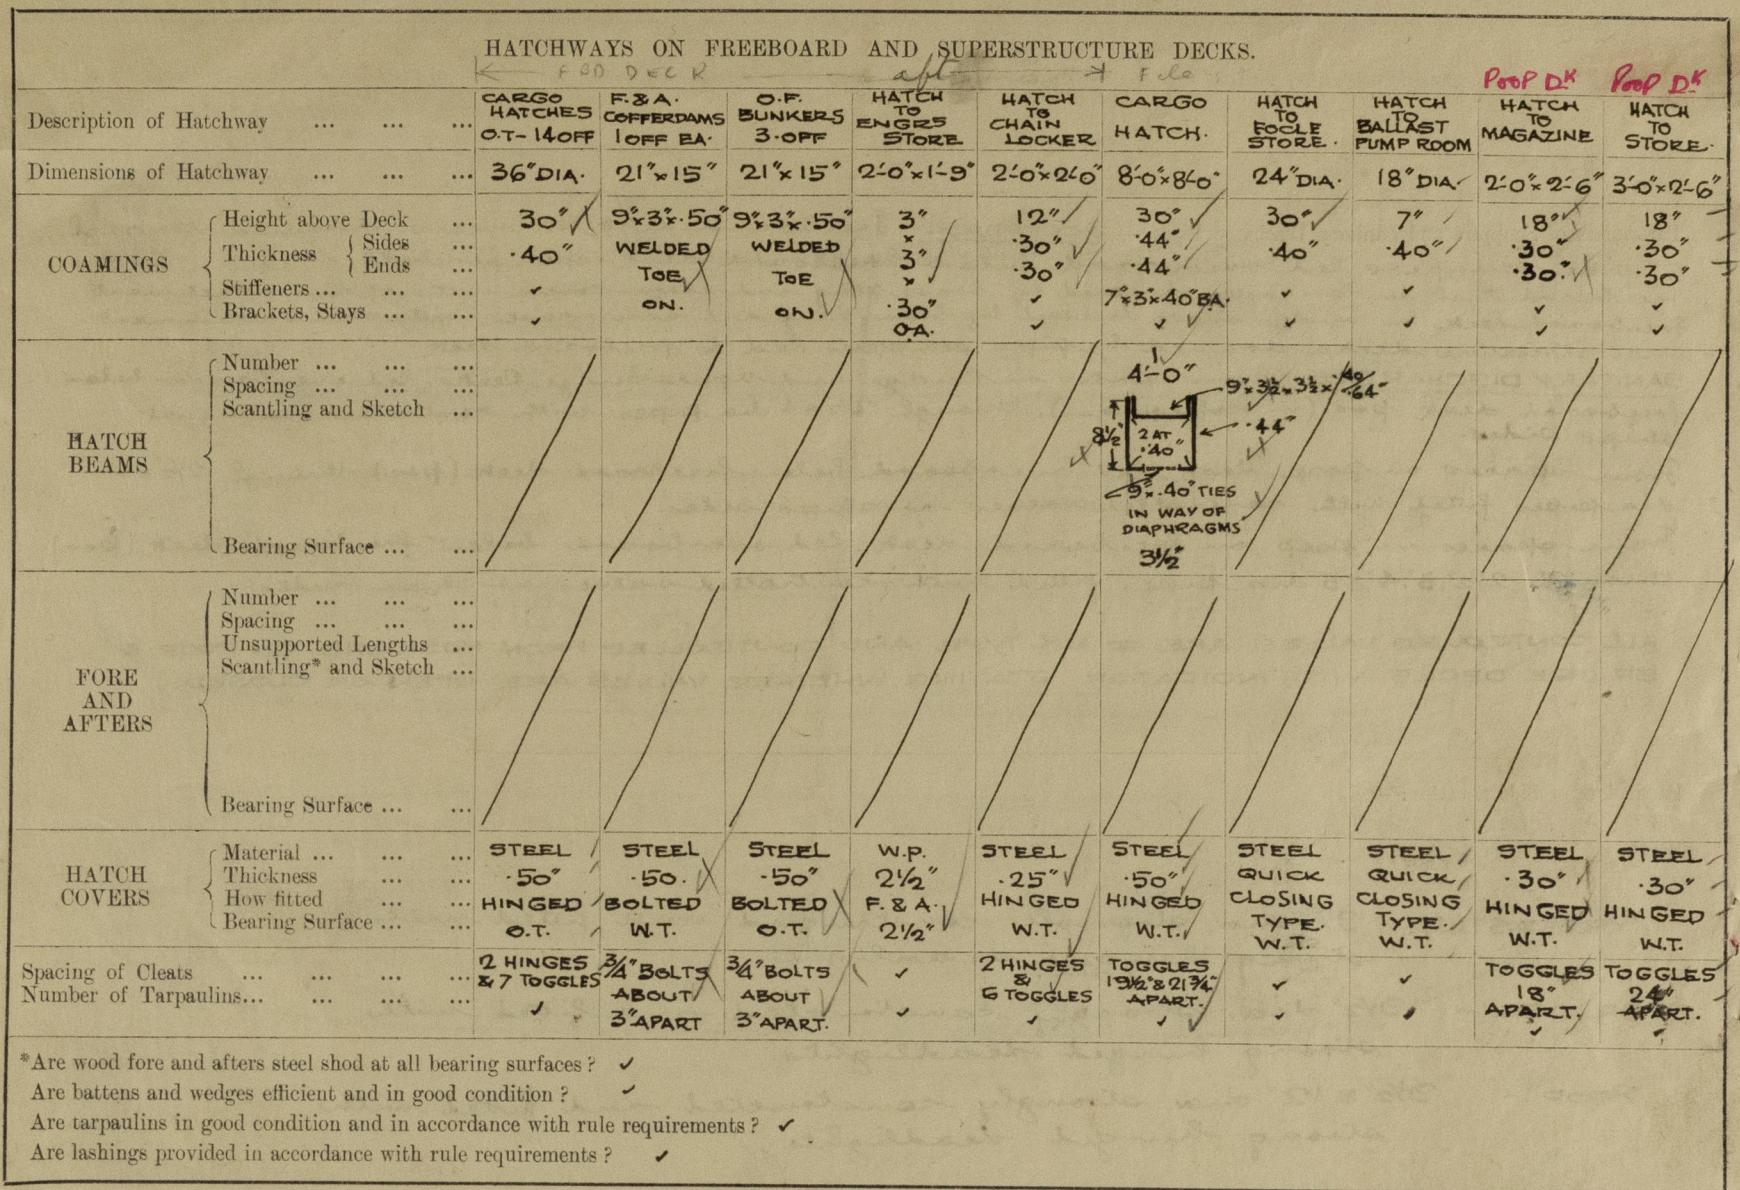 HATCHWAYS ON FREEBOARD AND SUPERSTRUCTURE DECKS.
FBD DECK aft F'cle
POOP DK POOP DK
Description of Hatchway ... ... ...
CARGO HATCHES O.T-14OFF
F. & A. COFFERDAMS 1 OFF EA.
O.F. BUNKERS 3.OFF
HATCH TO ENGRS STORE
HATCH TO CHAIN LOCKER
CARGO HATCH.
HATCH TO FOCLE STORE.
HATCH TO BALLAST PUMP ROOM
HATCH TO MAGAZINE
HATCH TO STORE.
Dimensions of Hatchway ... ... ... 36" DIA. 21"x15" 21"x15" 2'-0"x1'-9" 2'-0"x2'-0" 8'-0"x8'-0" 24" DIA. 18" DIA. 2'-0"x2'-6" 3'-0"x2'-6"
COAMINGS
Height above Deck ... 30" 9"x3"x.50" 9"x3"x.50" 3" 12" 30" 30" 7" 18" 18"
Thickness { Sides ... .40" WELDED WELDED x .30" .44" .40" .40" .30" .30"
Ends ... TOE TOE 3" .30" .44" .30" .30"
Stiffeners ... ... ... ✓ ON. ON. x ✓ 7"x3"x.40" BA. ✓ ✓ ✓ ✓
Brackets, Stays ... ... ✓ .30" O.A. ✓ ✓ ✓ ✓ ✓ ✓
HATCH BEAMS
Number ... ... ... 1
Spacing ... ... ... 4'-0"
Scantling and Sketch ... 9"x3½x3½x.40/.64"
8½" 2 AT .40" .44"
9"x.40" TIES
IN WAY OF
DIAPHRAGMS
Bearing Surface ... ... 3½"
FORE AND AFTERS
Number ... ... ...
Spacing ... ... ...
Unsupported Lengths ...
Scantling* and Sketch ...
Bearing Surface ... ...
HATCH COVERS
Material ... ... ... STEEL STEEL STEEL W.P. STEEL STEEL STEEL STEEL STEEL STEEL
Thickness ... ... .50" .50. .50" 2½" .25" .50" QUICK QUICK .30" .30"
How fitted ... ... HINGED BOLTED BOLTED F. & A. HINGED HINGED CLOSING TYPE. CLOSING TYPE. HINGED HINGED
Bearing Surface ... ... O.T. W.T. O.T. 2½" W.T. W.T. W.T. W.T. W.T. W.T.
Spacing of Cleats ... ... ... ...
2 HINGES & 7 TOGGLES
¾" BOLTS ABOUT 3" APART
¾" BOLTS ABOUT 3" APART.
✓
2 HINGES & 6 TOGGLES
TOGGLES 19½" & 21¾" APART.
✓
✓
TOGGLES 18" APART.
TOGGLES 24" APART.
Number of Tarpaulins... ... ... ... ✓ ✓ ✓ ✓ ✓ ✓ ✓ ✓
*Are wood fore and afters steel shod at all bearing surfaces ? ✓
Are battens and wedges efficient and in good condition ? ✓
Are tarpaulins in good condition and in accordance with rule requirements ? ✓
Are lashings provided in accordance with rule requirements ? ✓